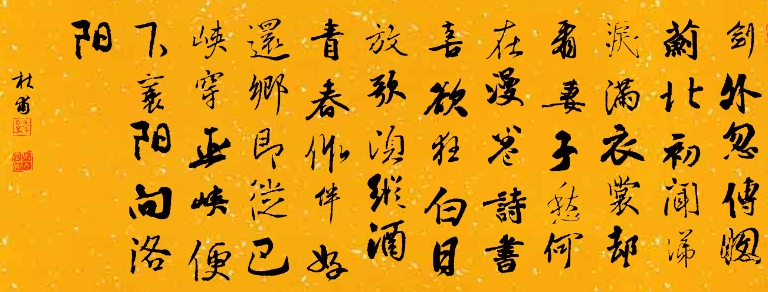 劍外忽傳
薊北初聞涕
淚滿衣裳却
看妻子愁何
在漫卷詩書
喜欲狂白日
放歌須縱酒
青春作伴好
還鄉即從巴
峽穿巫峽便
下襄陽向洛
陽
杜甫